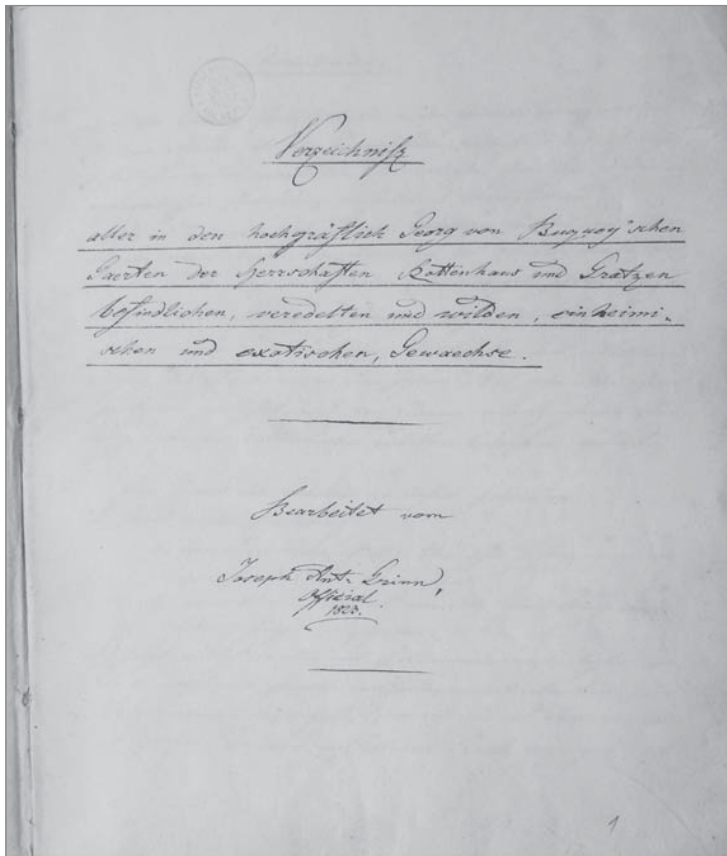 Verzeichniß
aller in den hochgräflich Georg von Buquoy'schen
Gaerten der Herrschaften Rottenhaus und Gratzen
befindlichen, veredelten und wilden, einheimi-
schen und exotischen, Gewaechse.
Bearbeitet vom
Joseph Ant.
Offizial.
1823.
1